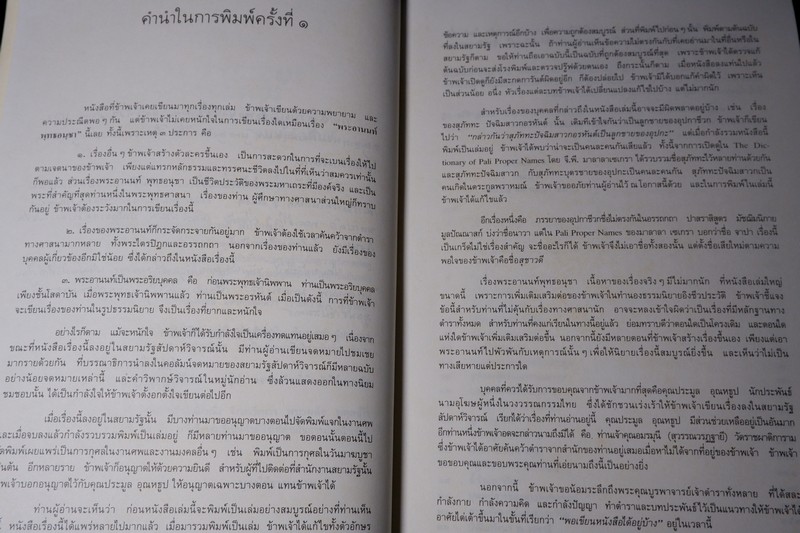 คำนำในการพิมพ์ครั้งที่ ๑
หนังสือที่ข้าพเจ้าเคยเขียนมาทุกเรื่องทุกเล่ม ข้าพเจ้าเขียนด้วยความพยายาม และ
ความประณีตพอๆ กัน แต่ข้าพเจ้าไม่เคยหนักใจในการเขียนเรื่องใดเหมือนเรื่อง "พระอานนท์
พุทธอนุชา" นี้เลย ทั้งนี้เพราะเหตุ ๓ ประการ คือ
๑. เรื่องอื่นๆ ข้าพเจ้าสร้างตัวละครขึ้นเอง เป็นการสะดวกในการที่จะเบนเรื่องให้ไป
ตามเจตนาของข้าพเจ้า เพียงแต่แทรกหลักธรรมและทรรศนะชีวิตลงไปในที่ที่เห็นว่าสมควรเท่านั้น
ก็พอแล้ว ส่วนเรื่องพระอานนท์ พุทธอนุชา เป็นชีวประวัติของพระมหาเถระที่มีองค์จริง และเป็น
พระที่สำคัญที่สุดท่านหนึ่งในพระพุทธศาสนา เรื่องของท่าน ผู้ศึกษาทางศาสนาส่วนใหญ่ก็ทราบ
กันอยู่ ข้าพเจ้าต้องระวังมากในการเขียนเรื่องนี้
๒. เรื่องของพระอานนท์ก็กระจัดกระจายกันอยู่มาก ข้าพเจ้าต้องใช้เวลาค้นคว้าจากตำรา
ทางศาสนามากหลาย ทั้งพระไตรปิฎกและอรรถกถา นอกจากเรื่องของท่านแล้ว ยังมีเรื่องของ
บุคคลผู้เกี่ยวข้องอีกมิใช่น้อย ซึ่งได้กล่าวถึงในหนังสือเรื่องนี้
๓. พระอานนท์เป็นพระอริยบุคคล คือ ก่อนพระพุทธเจ้านิพพาน ท่านเป็นพระอริยบุคคล
เพียงชั้นโสดาบัน เมื่อพระพุทธเจ้านิพพานแล้ว ท่านเป็นพระอรหันต์ เมื่อเป็นดังนี้ การที่ข้าพเจ้า
จะเขียนเรื่องของท่านในรูปธรรมนิยาย จึงเป็นเรื่องที่ยากและหนักใจ
อย่างไรก็ตาม แม้จะหนักใจ ข้าพเจ้าก็ได้รับกำลังใจเป็นเครื่องทดแทนอยู่เสมอๆ เนื่องจาก
ขณะที่หนังสือเรื่องนี้ลงอยู่ในสยามรัฐสัปดาห์วิจารณ์นั้น มีท่านผู้อ่านเขียนจดหมายไปชมเชย
มากรายด้วยกัน ที่บรรณาธิการนำลงในคอลัมน์จดหมายของสยามรัฐสัปดาห์วิจารณ์ก็มีหลายฉบับ
อย่างน้อยจดหมายเหล่านี้ และคำวิพากษ์วิจารณ์ในหมู่นักอ่าน ซึ่งล้วนแสดงออกในทางนิยม
ชมชอบนั้น ได้เป็นกำลังใจให้ข้าพเจ้าตั้งอกตั้งใจเขียนต่อไปอีก
เมื่อเรื่องนี้ลงอยู่ในสยามรัฐนั้น มีบางท่านมาขออนุญาตบางตอนไปจัดพิมพ์แจกในงานศพ
และเมื่อจบลงแล้วกำลังรวบรวมพิมพ์เป็นเล่มอยู่ ก็มีหลายท่านมาขออนุญาต ขอตอนนั้นตอนนี้ไป
จัดพิมพ์เผยแพร่เป็นการกุศลในงานศพและงานมงคลอื่นๆ เช่น พิมพ์เป็นการกุศลในวันมาฆบูชา
เป็นต้น อีกหลายราย ข้าพเจ้าก็อนุญาตให้ด้วยความยินดี สำหรับผู้ที่ไปติดต่อที่สำนักงานสยามรัฐนั้น
ข้าพเจ้าบอกอนุญาตไว้กับคุณประมูล อุณหธูป ให้อนุญาตเฉพาะบางตอน แทนข้าพเจ้าได้
ท่านผู้อ่านจะเห็นว่า ก่อนหนังสือเล่มนี้จะพิมพ์เป็นเล่มอย่างสมบูรณ์อย่างที่ท่านเห็น
นี้ หนังสือเรื่องนี้ได้แพร่หลายไปมากแล้ว เมื่อมารวมพิมพ์เป็นเล่ม ข้าพเจ้าได้แก้ไขทั้งตัวอักษร
ข้อความ และเหตุการณ์อีกบ้าง เพื่อความถูกต้องสมบูรณ์ ส่วนที่พิมพ์ไปก่อนๆ นั้น พิมพ์ตามต้นฉบับ
ที่ลงในสยามรัฐ เพราะฉะนั้น ถ้าท่านผู้อ่านเห็นข้อความไม่ตรงกันกับที่เคยอ่านมาในที่อื่นหรือใน
สยามรัฐก็ตาม ขอให้ท่านถือเอาฉบับนี้เป็นฉบับที่ถูกต้องสมบูรณ์ที่สุด เพราะข้าพเจ้าได้ตรวจแก้
ต้นฉบับก่อนจะส่งโรงพิมพ์และตรวจปรู๊ฟด้วยตนเอง ถึงกระนั้นก็ตาม เมื่อหนังสือลงแท่นไปแล้ว
ข้าพเจ้าเปิดดูก็ยังมีสะกดการันต์ผิดอยู่อีก ก็ต้องปล่อยไป ข้าพเจ้ามิได้บอกแก้คำผิดไว้ เพราะเห็น
เป็นส่วนน้อย อนึ่ง หัวเรื่องแต่ละบทข้าพเจ้าได้เปลี่ยนแปลงแก้ไขไปบ้าง แต่ไม่มากนัก
สำหรับเรื่องของบุคคลที่กล่าวถึงในหนังสือเรื่องนี้อาจจะมีผิดพลาดอยู่บ้าง เช่น เรื่อง
ของสุภัททะ ปัจฉิมสาวกอรหันต์ นั้น เดิมทีเข้าใจกันว่าเป็นลูกชายของอุปกาชีวก ข้าพเจ้าก็เขียน
ไปว่า "กล่าวกันว่าสุภัททะปัจฉิมสาวกอรหันต์เป็นลูกชายของอุปกะ" แต่เมื่อกำลังรวมหนังสือนี้
พิมพ์เป็นเล่มอยู่ ข้าพเจ้าได้พบว่าน่าจะเป็นคนละคนกันเสียแล้ว ทั้งนี้จากการเปิดดูใน The Dic-
tionary of Pali Proper Names โดย จี.พี. มาลาลาเซเกรา ได้รวบรวมชื่อสุภัททะไว้หลายท่านด้วยกัน
และสุภัททะปัจฉิมสาวก กับสุภัททะบุตรชายของอุปกะเป็นคนละคนกัน สุภัททะปัจฉิมสาวกเป็น
คนเกิดในตระกูลพราหมณ์ ข้าพเจ้าขออภัยท่านผู้อ่านไว้ ณ โอกาสนี้ด้วย และในการพิมพ์ในเล่มนี้
ข้าพเจ้าได้แก้ไขแล้ว
อีกเรื่องหนึ่งคือ ภรรยาของอุปกาชีวกซึ่งชื่อไม่ตรงกันในอรรถกถา ปาสราสิสูตร มัชฌิมนิกาย
มูลปัณณาสก์ บ่งว่าชื่อนาวา แต่ใน Pali Proper Names ของมาลาลาเซเกรา บอกว่าชื่อ จาปา เรื่องนี้
เป็นเกร็ดไม่ใช่เรื่องสำคัญ จะชื่ออะไรก็ได้ ข้าพเจ้าจึงไม่เอาชื่อทั้งสองนั้น แต่ตั้งชื่อเสียใหม่ตามความ
พอใจของข้าพเจ้าคือชื่อสุชาวดี
เรื่องพระอานนท์พุทธอนุชา เนื้อหาของเรื่องจริงๆ มีไม่มากนัก ที่หนังสือเล่มใหญ่
ขนาดนี้ เพราะการเพิ่มเติมเสริมต่อของข้าพเจ้าในทำนองธรรมนิยายอิงชีวประวัติ ข้าพเจ้าชี้แจง
ข้อนี้สำหรับท่านที่ไม่คุ้นกับเรื่องทางศาสนานัก อาจจะหลงเข้าใจผิดว่าเป็นเรื่องที่มีหลักฐานทาง
ตำราทั้งหมด สำหรับท่านที่คงแก่เรียนในทางนี้อยู่แล้ว ย่อมทราบดีว่าตอนใดเป็นโครงเดิม และตอนใด
แห่งใดข้าพเจ้าเพิ่มเติมเสริมต่อขึ้น นอกจากนี้ยังมีหลายตอนที่ข้าพเจ้าสร้างเรื่องขึ้นเอง เพียงแต่เอา
พระอานนท์ไปพัวพันกับเหตุการณ์นั้นๆ เพื่อให้นิยายเรื่องนี้สมบูรณ์ยิ่งขึ้น และเห็นว่าไม่เป็น
ทางเสียหายแต่ประการใด
บุคคลที่ควรได้รับการขอบคุณจากข้าพเจ้ามากที่สุดคือคุณประมูล อุณหธูป นักประพันธ์
นามอุโฆษผู้หนึ่งในวงวรรณกรรมไทย ซึ่งได้ชักชวนเร่งเร้าให้ข้าพเจ้าเขียนเรื่องลงในสยามรัฐ
สัปดาห์วิจารณ์ เรียกได้ว่าเรื่องที่ท่านอ่านอยู่นี้ คุณประมูล อุณหธูป มีส่วนช่วยเหลืออยู่เป็นอันมาก
อีกท่านหนึ่งข้าพเจ้าอดจะกล่าวนามถึงมิได้ คือ ท่านเจ้าคุณอมรมุนี (สุวรรณวรฏฐายี) วัดราชผาติการาม
ซึ่งข้าพเจ้าได้อาศัยค้นคว้าตำราจากสำนักของท่านอยู่เสมอเมื่อหาไม่ได้จากที่อยู่ของข้าพเจ้า ข้าพเจ้า
ขอขอบคุณและขอบพระคุณท่านที่เอ่ยนามถึงนี้เป็นอย่างยิ่ง
นอกจากนี้ ข้าพเจ้าขอน้อมระลึกถึงพระคุณบูรพาจารย์เจ้าตำราทั้งหลาย ที่ได้สละ
กำลังกาย กำลังความคิด และกำลังปัญญา ทำตำราและบทประพันธ์ไว้เป็นแนวทางให้ข้าพเจ้าได้
อาศัยไต่เต้าขึ้นมาในชั้นที่เรียกว่า "พอเขียนหนังสือได้อยู่บ้าง" อยู่ในเวลานี้